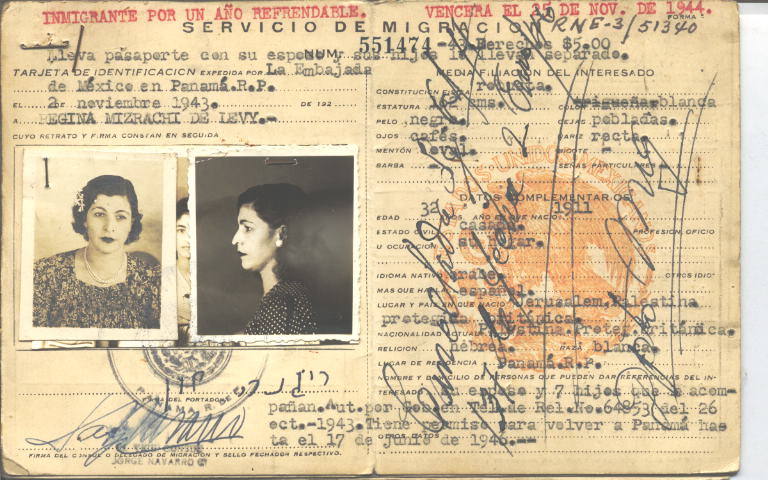 INMIGRANTE POR UN AÑO REFRENDABLE.
VENCERA EL 25 DE NOV. DE 1944.
FORMA
SERVICIO DE MIGRACION
RNE-3/51340
NUM. 551474 -43. Derechos $5.00
Lleva pasaporte con su esposo y sus hijos lo llevan separado.
TARJETA DE IDENTIFICACION EXPEDIDA POR La Embajada
de México en Panamá.R.P.
EL 2 de noviembre 1943. DE 192
A REGINA MIZRACHI DE LEVY.-
CUYO RETRATO Y FIRMA CONSTAN EN SEGUIDA
MEDIA FILIACION DEL INTERESADO
CONSTITUCION FISICA robusta.
ESTATURA cms. COLOR trigueña.blanca
PELO negro. CEJAS pobladas.
OJOS cafés. NARIZ recta.
MENTON oval. BIGOTE
BARBA - SEÑAS PARTICULARES
DATOS COMPLEMENTARIOS
EDAD 32 AÑOS. AÑO EN QUE NACIO 1911
ESTADO CIVIL casada. PROFESION, OFICIO
U OCUPACION su hogar.
IDIOMA NATIVO árabe. OTROS IDIO-
MAS QUE HABLA español.
LUCAR Y PAIS EN QUE NACIO Jerusalem, Palestina
protegida británica.
NACIONALIDAD ACTUAL Palestina.Proteg.británica.
RELIGION hebrea. RAZA blanca.
LUGAR DE RESIDENCIA Panamá.R.P.
NOMBRE Y DOMICILIO DE PERSONAS QUE PUEDEN DAR REFERENCIAS DEL IN-
TERESADO Su esposo y 7 hijos que la acom-
pañan.Aut.por Gob.en Tel.de Rel.No.64853 del 26
oct.-1943.Tiene permiso para volver a Panamá has
ta el 17 de junio de 1946.--
OTROS DATOS
ריג'ינה לוי
FIRMA DEL PORTADOR
PANAMA
JORGE NAVARRO
FIRMA DEL CONSUL O DELEGADO DE MIGRACION Y SELLO FECHADOR RESPECTIVO.